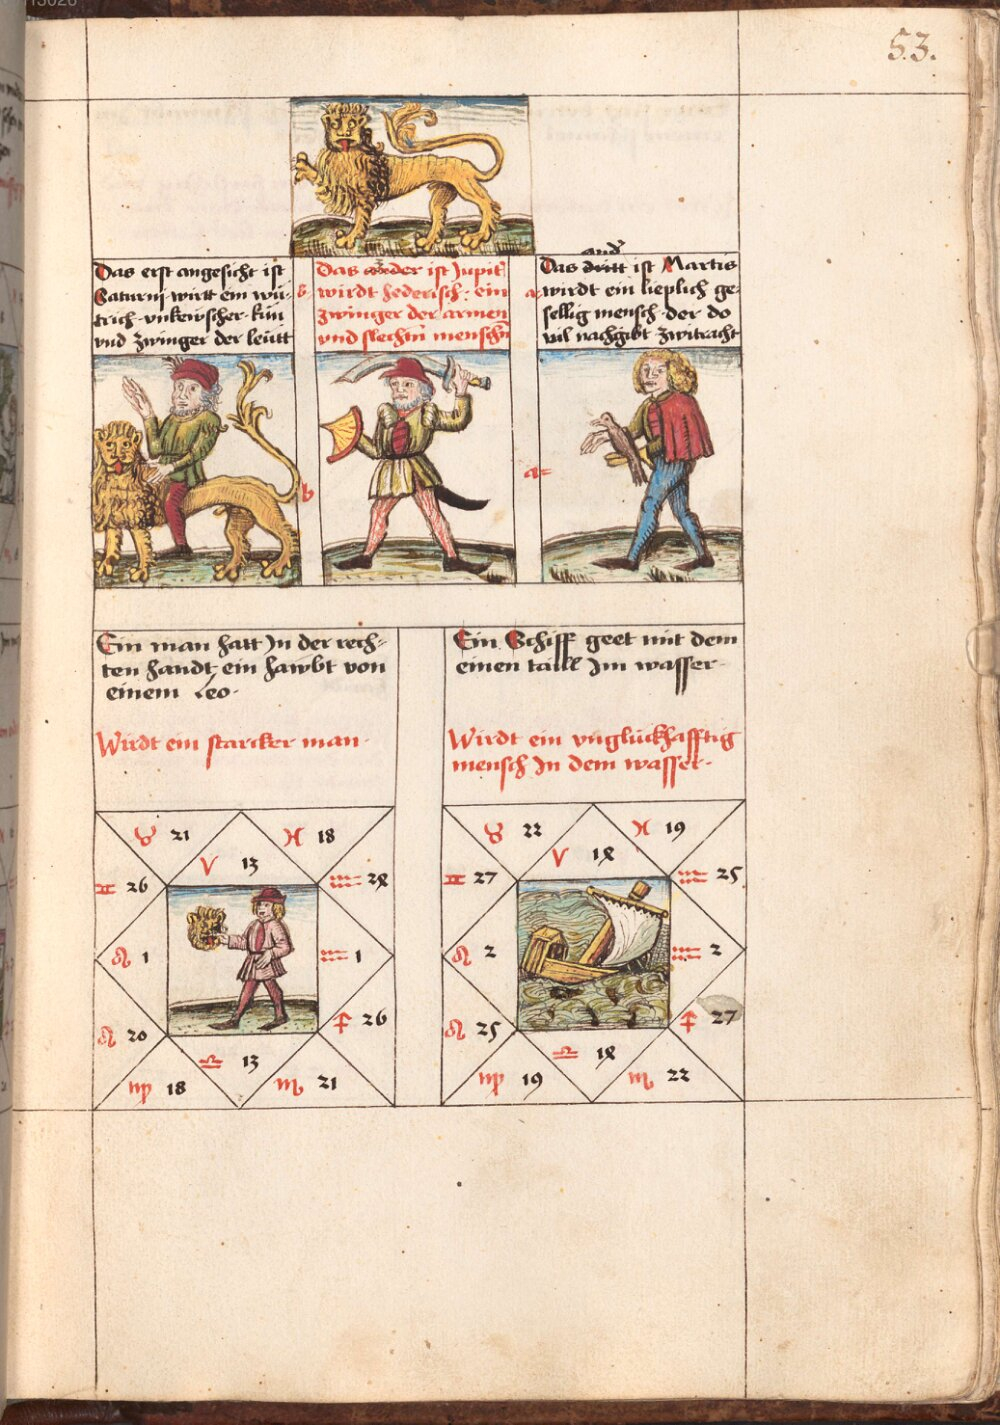 53.
Das erst angesicht ist
Saturni wirtt ein wü-
trich vnkeüscher kün
vnd zwinger der leütt
Das ander ist Jupit
wirdt hederisch ein
zwinger der armen
vnd slechtn menschn
b
b
and
Das dritt ist Martis
wirdt ein lieplich ge-
sellig mensch der do
vil nachgibt zwitracht
a
a
Ein man hatt Jn der rech-
ten handt ein hawbt von
einem Leo
Wirdt ein starcker man
Ein Schiff geet mit dem
einen taill Jm wasser
Wirdt ein vnglückhafftig
mensch Jn dem wasser
♉ 21 ♓ 18
♈ 13
♊ 26 ♒ 28
♌ 1 ♒ 1
♌ 20 ♐ 26
♎ 13
♍ 18 ♏ 21
♉ 22 ♓ 19
♈ 18
♊ 27 ♒ 25
♌ 2 ♒ 2
♌ 25 ♐ 27
♎ 18
♍ 19 ♏ 22